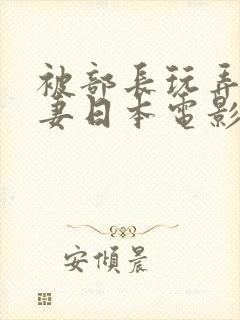 被部長玩弄
妻日本電影
安傾晨